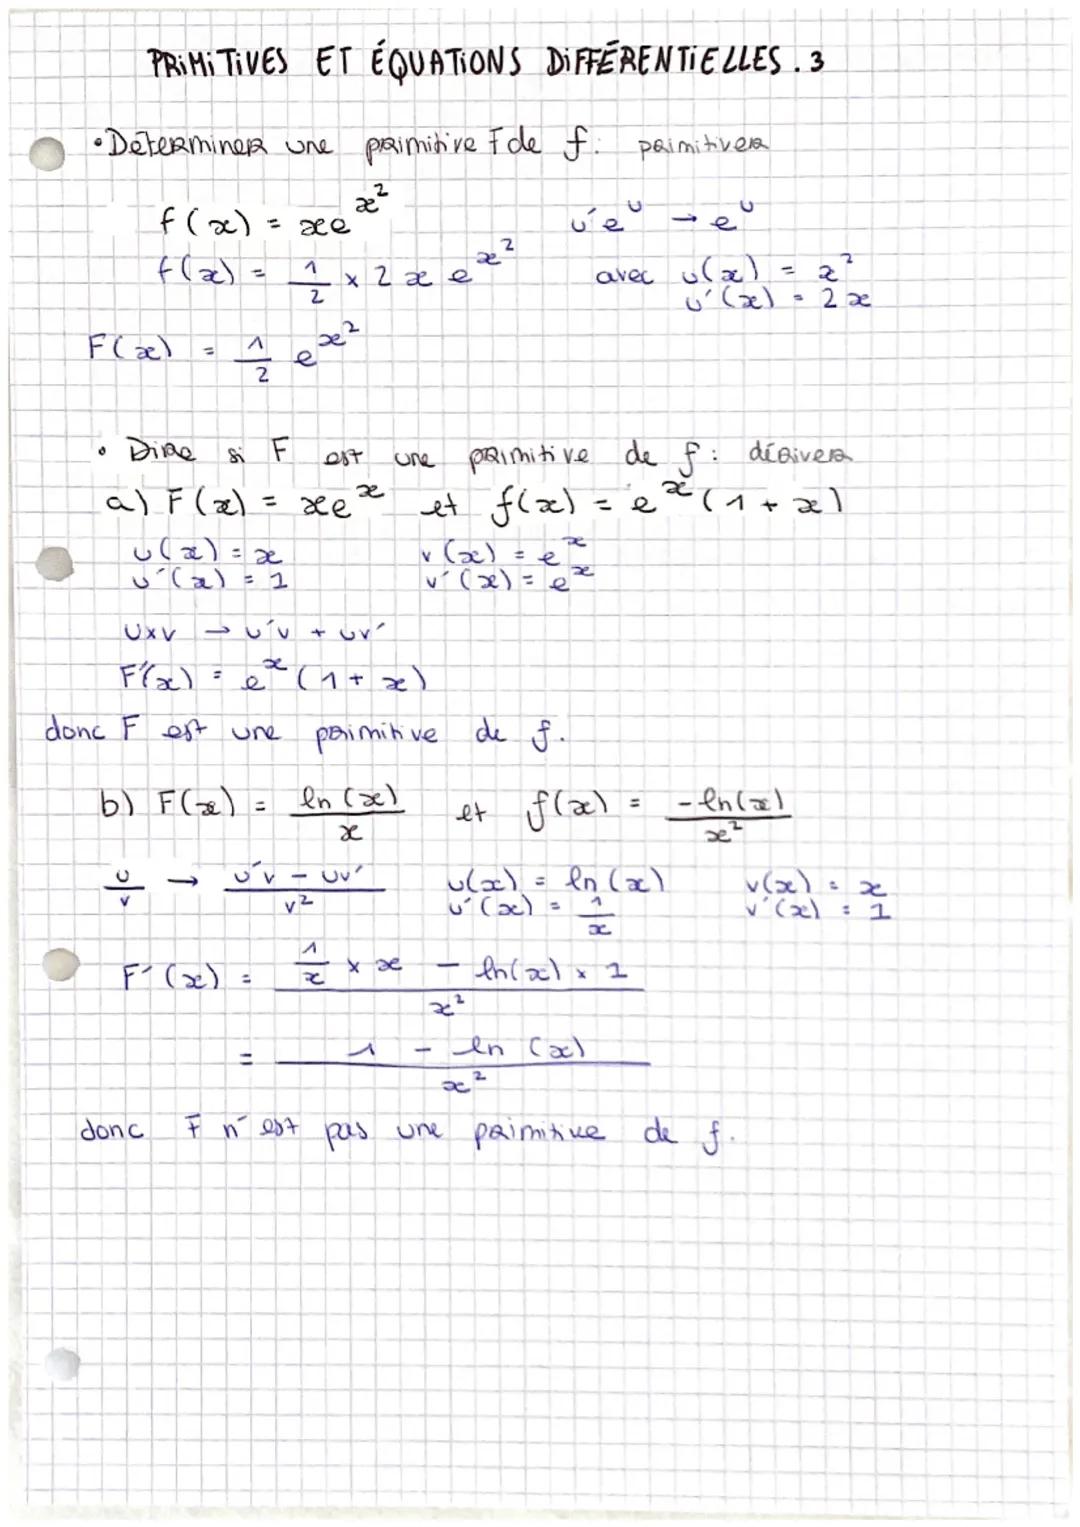 PRIMITIVES ET ÉQUATIONS DIFFÉRENTIELLES . 3
• Déterminer une primitive F de f : primitiver
f(x) = xe^{x²}
u'e^u → e^u
f(x) = 1/2 × 2xe^{x²}
avec u(x) = x²
u'(x) = 2x
F(x) = 1/2 e^{x²}
• Dire si F est une primitive de f : dériver
a) F(x) = xe^x et f(x) = e^x(1 + x)
u(x) = x v(x) = e^x
u'(x) = 1 v'(x) = e^x
U×V → u'v + uv'
F'(x) = e^x(1 + x)
donc F est une primitive de f.
b) F(x) = ln(x)/x et f(x) = -ln(x)/x²
u/v → (u'v - uv')/v² u(x) = ln(x) v(x) = x
u'(x) = 1/x v'(x) = 1
F'(x) = (1/x × x - ln(x) × 1)/x²
= (1 - ln(x))/x²
donc F n'est pas une primitive de f.